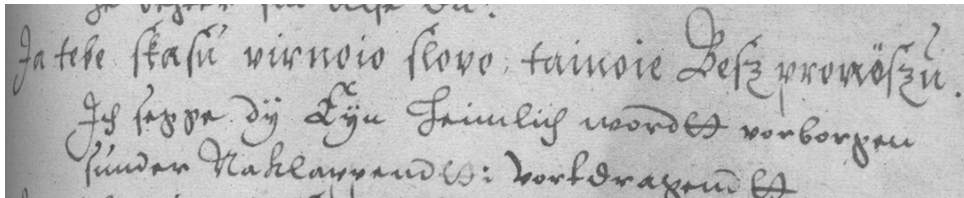 Ja tebe skasu virnoio slovo tainoie Besz pronöszu.
Ich segge dÿ Eÿn heimlich wordt vorborgen
sunder Naklappendt: vortdragendt